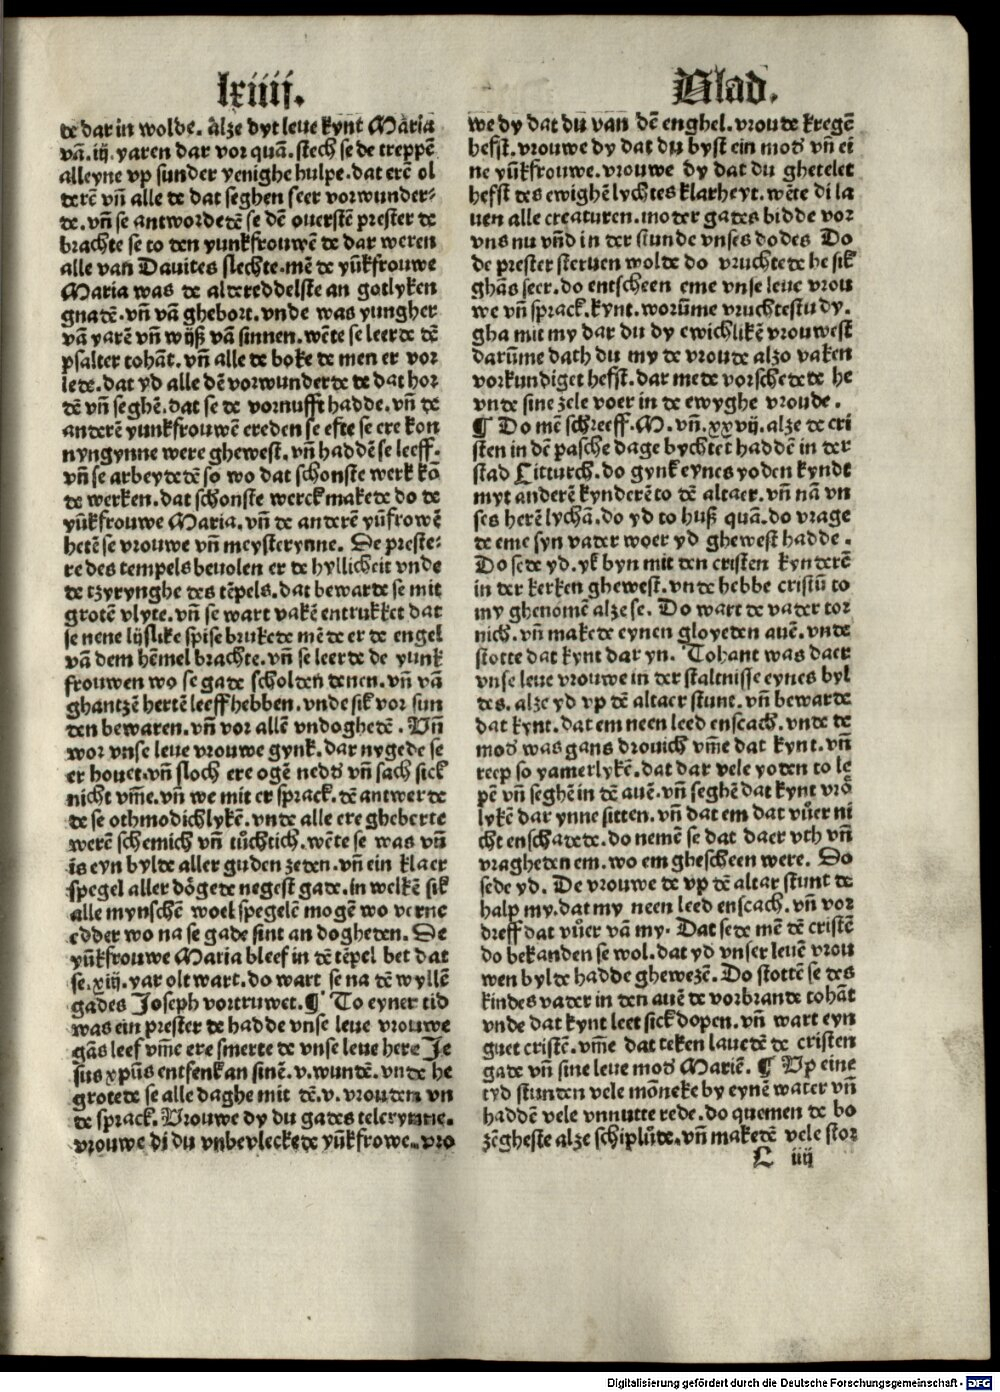 lxiiij.
Blad.
de dar in wolde. alze dyt leue kynt Maria
vā. iij. yaren dar vor quā. stech se de treppē
alleyne vp sunder yenighe hulpe. dat erē ol
derē vñ alle de dat seghen seer vorwunder⸗
de. vñ se antwordetē se dē ouerstē prester de
brachte se to den yunkfrouwē de dar weren
alle van Dauites slechte. mē de yūkfrouwe
Maria was de altereddelste an gotlyken
gnatē. vñ vā ghebort. vnde was yungher
vā yarē vñ wijß vā sinnen. wēte se leerde dē
psalter tohāt. vñ alle de boke de men er vor
lede. dat yd alle dē vorwunderde de dat hor
dē vñ seghē. dat se de vornufft hadde. vñ de
anderē yunkfrouwē ereden se efte se ere kon
nyngynne were ghewest. vñ haddē se leeff.
vñ se arbeydetē so wo dat schonste werk kō
de werken. dat schonste werck makede do de
yūkfrouwe Maria. vñ de anderē yūfrowē
hetē se vrouwe vñ meysterynne. De preste⸗
re des tempels beuolen er de hyllicheit vnde
de tzyrynghe des tēpels. dat bewarde se mit
grotē vlyte. vñ se wart vakē entrukket dat
se nene lijflike spise brukede mē de er de engel
vā dem hēmel brachte. vñ se leerde de yunk
frouwen wo se gade scholden denen. vñ vā
ghantzē hertē leeff hebben. vnde sik vor sun
den bewaren. vñ vor allē vndoghedē. Vñ
wor vnse leue vrouwe gynk. dar nygede se
er houet. vñ sloch ere ogē neds vñ sach sick
nicht vm̄e. vñ we mit er sprack. dē antwerde
de se othmodichlykē. vnde alle ere gheberte
werē schemich vñ tůchtich. wēte se was vñ
is eyn bylde aller guden zeden. vñ ein klaer
spegel aller dögede negest gade. in welkē sik
alle mynschē woel spegelē mogē wo verne
edder wo na se gade sint an dogheden. De
yūkfrouwe Maria bleef in dē tēpel bet dat
se. xiij. yar olt wart. do wart se na dē wyllē
gades Joseph vortruwet. ¶ To eyner tid
was ein prester de hadde vnse leue vrouwe
gās leef vm̄e ere smerte de vnse leue here Je
sus xp̄us entfenk an sinē. v. wundē. vnde he
grotede se alle daghe mit dē. v. vrouden vn
de sprack. Vrouwe dy du gades telerynne.
vrouwe di du vnbevleckede yūkfrowe. vro
we dy dat du van dē enghel. vroude kregē
hefst. vrouwe dy dat du byst ein mods vñ ei
ne yūkfrouwe. vrouwe dy dat du ghetelet
hefst des ewighē lychtes klarheyt. wēte di la
uen alle creaturen. moder gades bidde vor
vns nu vñd in der stunde vnses dodes Do
de prester steruen wolde do vruchtede he sik
ghās seer. do entscheen eme vnse leue vrou
we vñ sprack. kynt. worūme vruchtestu dy.
gha mit my dar du dy ewichlikē vrouwest
darūme dath du my de vroude alzo vaken
vorkundiget hefst. dar mede vorschedede he
vnde sine zele voer in de ewyghe vroude.
¶ Do mē schreeff. M. vñ. xxvij. alze de cri
sten in dē pasche dage bychtet haddē in der
stad Litturch. do gynk eynes yoden kyndt
myt anderē kynderē to dē altaer. vñ nā vn
ses herē lychā. do yd to huß quā. do vrage
de eme syn vater woer yd ghewest hadde.
Do sede yd. yk byn mit den cristen kynderē
in der kerken ghewest. vnde hebbe cristū to
my ghenomē alze se. Do wart de vader tor
nich. vñ makede eynen gloyeden auē. vnde
stotte dat kynt dar yn. Tohant was daer
vnse leue vrouwe in der staltnisse eynes byl
des. alze yd vp dē altaer stunt. vñ bewarde
dat kynt. dat em neen leed enscach. vnde de
mods was gans drouich vm̄e dat kynt. vñ
reep so yamerlykē. dat dar vele yoden to le
pē vñ seghē in dē auē. vñ seghē dat kynt vrö
lykē dar ynne sitten. vñ dat em dat vůer ni
cht enschadede. do nemē se dat daer vth vñ
vragheden em. wo em ghescheen were. Do
sede yd. De vrouwe de vp dē altar stunt de
halp my. dat my neen leed enscach. vñ vor
dreff dat vůer vā my. Dat sede mē dē cristē
do bekanden se wol. dat yd vnser leuē vrou
wen bylde hadde ghewezē. Do stottē se des
kindes vader in den auē de vorbrande tohāt
vnde dat kynt leet sick dopen. vñ wart eyn
guet cristē. vm̄e dat teken lauedē de cristen
gade vñ sine leue mods Mariē. ¶ Vp eine
tyd stunden vele mōneke by eynē water vñ
haddē vele vnnutte rede. do quemen de bo
zēgheste alze schiplůde. vñ makedē vele stor
L iiij
Digitalisierung gefördert durch die Deutsche Forschungsgemeinschaft - DFG